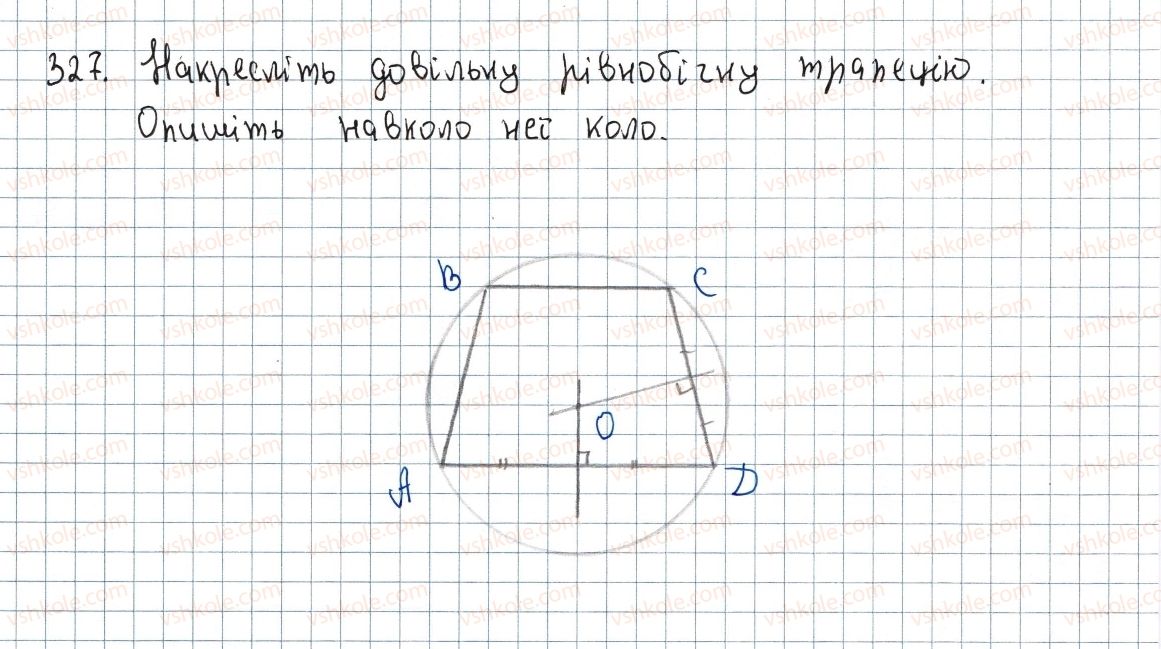 327. Накресліть довільну рівнобічну трапецію.
Опишіть навколо неї коло.
B
C
O
A
D
vshkole.com